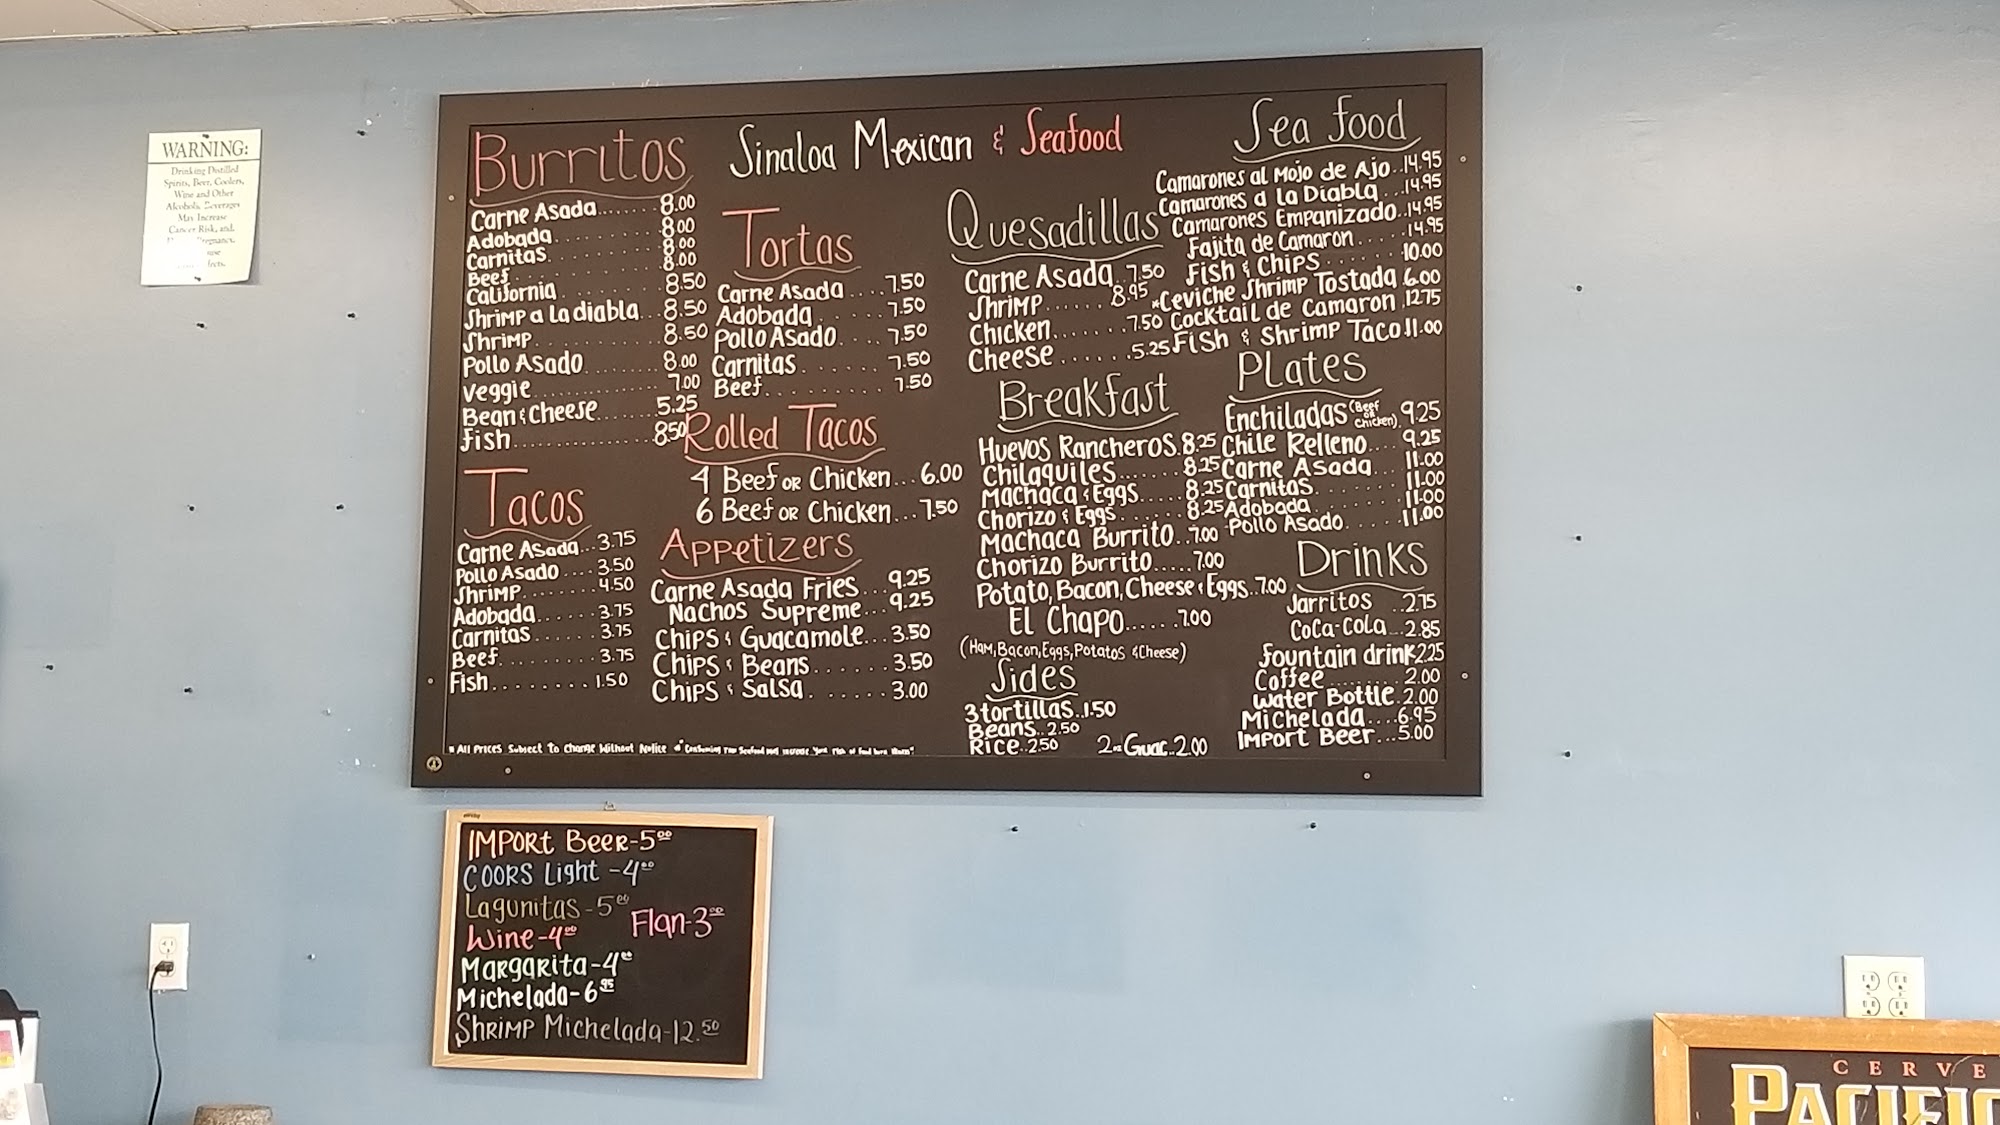 WARNING:
Drinking Distilled
Spirits, Beer, Coolers,
Wine and Other
Alcoholic Beverages
May Increase
Cancer Risk, and,
Pregnancy,
Sinaloa Mexican & Seafood
Burritos
Carne Asada.......8.00
Adobada..........8.00
Carnitas..........8.00
Beef..........8.00
California..........8.50
Shrimp a la diabla...8.50
Shrimp..........8.50
Pollo Asado..........8.00
Veggie..........7.00
Bean & Cheese.......5.25
Fish..........8.50
Tacos
Carne Asada...3.75
Pollo Asado....3.50
Shrimp.........4.50
Adobada.......3.75
Carnitas.......3.75
Beef.........3.75
Fish.........1.50
Tortas
Carne Asada....7.50
Adobada.......7.50
Pollo Asado....7.50
Carnitas.......7.50
Beef.........7.50
Rolled Tacos
4 Beef or Chicken...6.00
6 Beef or Chicken...7.50
Appetizers
Carne Asada Fries...9.25
Nachos Supreme...9.25
Chips & Guacamole...3.50
Chips & Beans.......3.50
Chips & Salsa.......3.00
Quesadillas
Carne Asada.7.50
Shrimp.......8.95
Chicken.......7.50
Cheese......5.25
Breakfast
Huevos Rancheros.8.25
Chilaquiles.......8.25
Machaca & Eggs.....8.25
Chorizo & Eggs.......8.25
Machaca Burrito..7.00
Chorizo Burrito.....7.00
Potato, Bacon, Cheese & Eggs..7.00
El Chapo......7.00
(Ham, Bacon, Eggs, Potatos & Cheese)
Sides
3 tortillas..1.50
Beans..2.50
Rice..2.50
2oz Guac..2.00
Sea food
Camarones al Mojo de Ajo..14.95
Camarones a la Diabla...14.95
Camarones Empanizado..14.95
Fajita de Camaron.....14.95
Fish & Chips.......10.00
*Ceviche Shrimp Tostada 6.00
Cocktail de Camaron.12.75
Fish & Shrimp Taco 11.00
Plates
Enchiladas (Beef or Chicken) 9.25
Chile Relleno...9.25
Carne Asada...11.00
Carnitas.......11.00
Adobada.......11.00
Pollo Asado.....11.00
Drinks
Jarritos..2.75
Coca-Cola...2.85
Fountain drink 2.25
Coffee.........2.00
Water Bottle.2.00
Michelada....6.95
Import Beer...5.00
* All Prices Subject to Change Without Notice
IMPORT BEER-5.00
COORS Light-4.00
Lagunitas-5.00
Wine-4.00
Flan-3.00
Margarita-4.00
Michelada-6.95
Shrimp Michelada-12.50
CERVE
PACIFIC